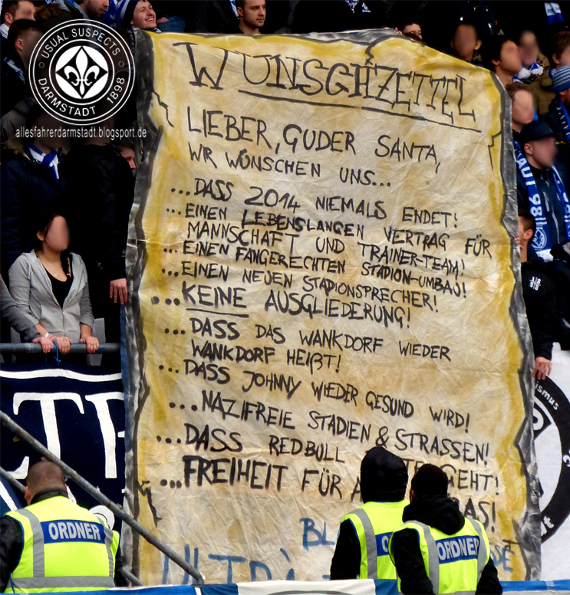 USUAL SUSPECTS
DARMSTADT
1898
allesfahrerdarmstadt.blogsport.de
WUNSCHZETTEL
LIEBER, GUDER SANTA,
WIR WÜNSCHEN UNS...
...DASS 2014 NIEMALS ENDET!
...EINEN LEBENSLANGEN VERTRAG FÜR
MANNSCHAFT UND TRAINER-TEAM!
...EINEN FANGERECHTEN STADION-UMBAU!
...EINEN NEUEN STADIONSPRECHER!
...KEINE AUSGLIEDERUNG!
...DASS DAS WANKDORF WIEDER
WANKDORF HEIßT!
...DASS JOHNNY WIEDER GESUND WIRD!
...NAZIFREIE STADIEN & STRASSEN!
...DASS REDBULL GEHT!
...FREIHEIT FÜR
BL
ULTRA
ORDNER
ORDNER